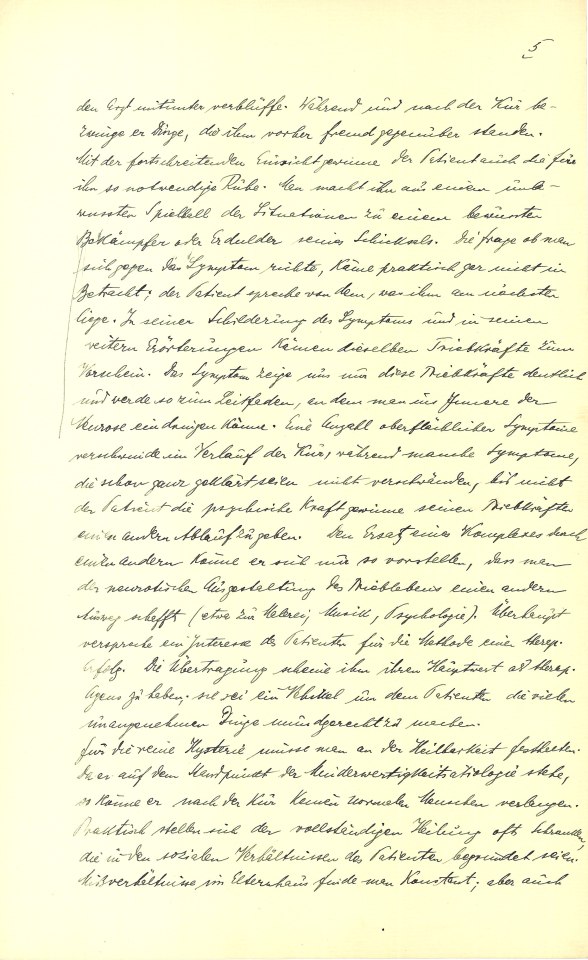 5
den Arzt mitunter verblüffe. Während und nach der Kur be-
zwinge er Dinge, die ihm vorher fremd gegenüber standen.
Mit der fortschreitenden Einsicht gewinne der Patient auch die für
ihn so notwendige Ruhe. Man macht ihn aus einem unbe-
wussten Spielball der Situationen zu einem bewussten
Bekämpfer oder Erdulder seines Schicksals. Die Frage ob man
sich gegen das Symptom richte, käme praktisch gar nicht in
Betracht; der Patient spreche von dem, was ihm am nächsten
liege. In seiner Schilderung des Symptoms und in seinen
weitern Erörterungen kämen dieselben Triebkräfte zum
Vorschein. Das Symptom zeige uns nur diese Triebkräfte deutlich
und werde so zum Leitfaden, an dem man ins Innere der
Neurose eindringen könne. Eine Anzahl oberflächlicher Symptome
verschwinde im Verlauf der Kur, während manche Symptome,
die schon ganz geklärt seien nicht verschwänden, bis nicht
der Patient die psychische Kraft gewinne seinen Triebkräften
einen andern Ablauf zu geben. Den Ersatz eines Komplexes durch
einen andern könne er sich nur so vorstellen, dass man
der neurotischen Ausgestaltung des Trieblebens einen andern
Ausweg schafft (etwa zur Malerei, Musik, Psychologie). Überhaupt
verspreche ein Interesse des Patienten für die Methode einen therap.
Erfolg. Die Übertragung scheine ihm ihren Hauptwert als therap.
Agens zu haben. sie sei ein Vehikel um dem Patienten die vielen
unangenehmen Dinge mundgerecht zu machen.
Für die reine Hysterie müsse man an der Heilbarkeit festhalten.
Da er auf dem Standpunkt der Minderwertigkeitsätiologie stehe,
so könne er nach der Kur keinen normalen Menschen verlangen.
Praktisch stellen sich der vollständigen Heilung oft Schranken,
die in den sozialen Verhältnissen des Patienten begründet seien.
Mißverhältnisse im Elternhaus finde man konstant; aber auch